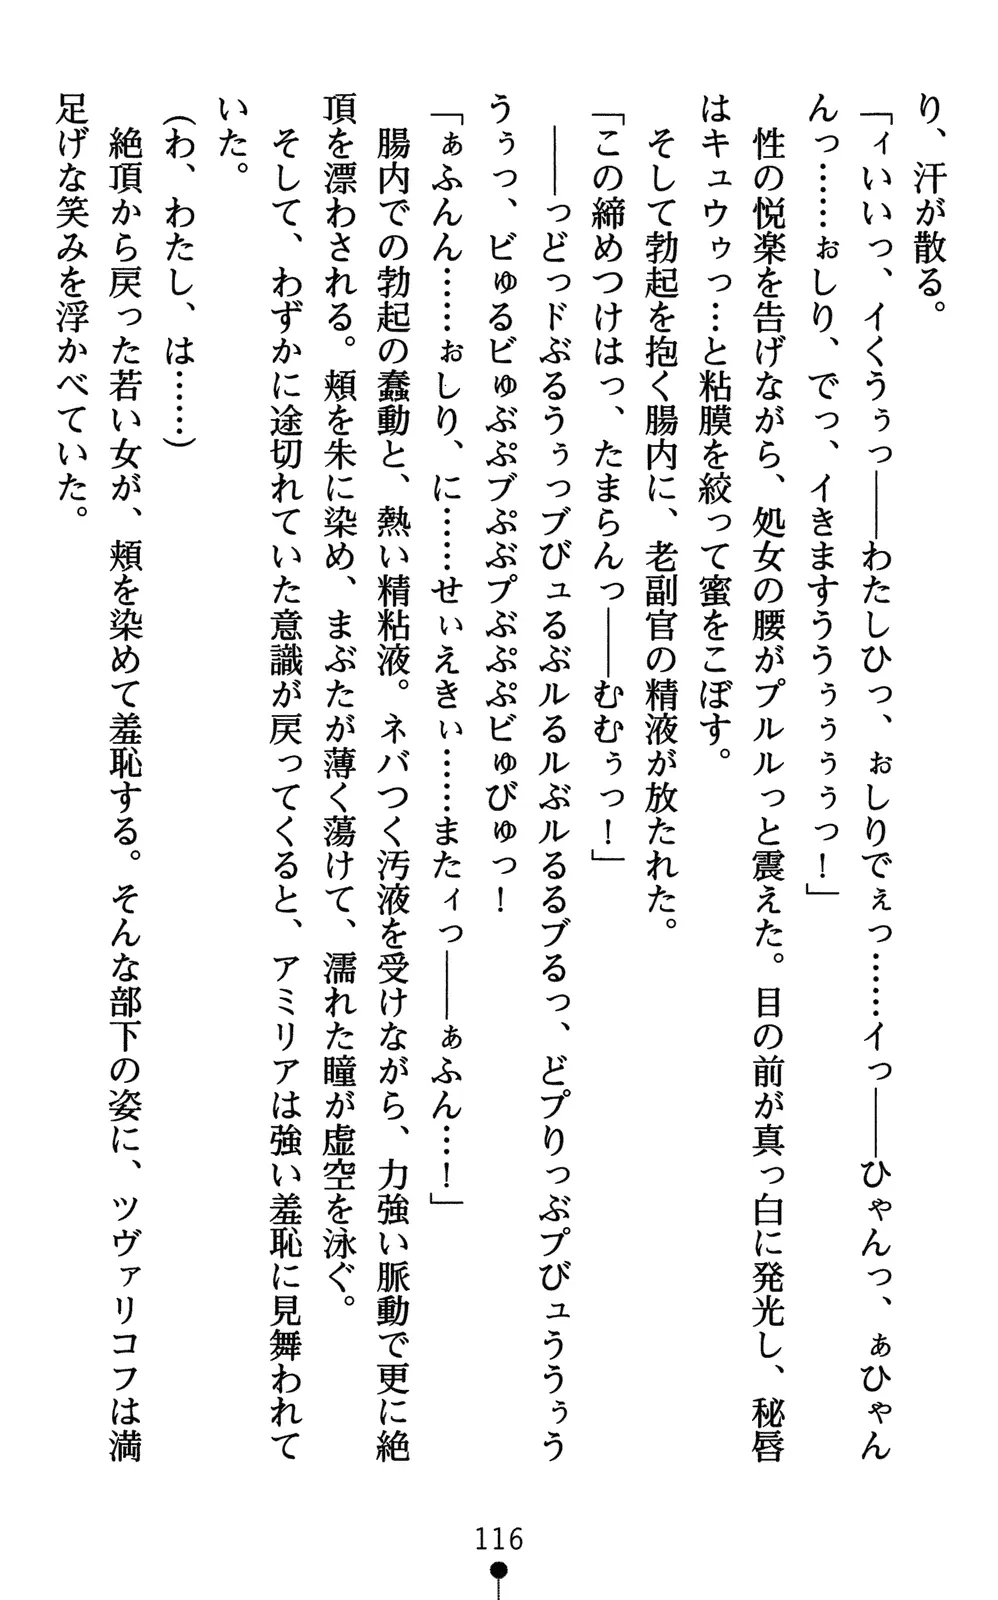 り、汗が散る。
「ィいいっ、イくうぅっ――わたしひっ、ぉしりでぇっ……イっ――ひゃんっ、ぁひゃん
んっ……ぉしり、でっ、イきますううぅぅぅぅっ！」
　性の悦楽を告げながら、処女の腰がプルルっと震えた。目の前が真っ白に発光し、秘唇
はキュウゥっ…と粘膜を絞って蜜をこぼす。
　そして勃起を抱く腸内に、老副官の精液が放たれた。
「この締めつけはっ、たまらんっ――むむぅっ！」
　――っどっドぶるうぅっブびュるぶルるルぶルるるブるっ、どプりっぶプびュううぅう
うぅっ、ビゅるビゅぶぷブぷぶプぶぷぷビゅびゅっ！
「ぁふんん……ぉしり、に……せぃえきぃ……またィっ――ぁふん…！」
　腸内での勃起の蠢動と、熱い精粘液。ネバつく汚液を受けながら、力強い脈動で更に絶
頂を漂わされる。頬を朱に染め、まぶたが薄く蕩けて、濡れた瞳が虚空を泳ぐ。
　そして、わずかに途切れていた意識が戻ってくると、アミリアは強い羞恥に見舞われて
いた。
（わ、わたし、は……）
　絶頂から戻った若い女が、頬を染めて羞恥する。そんな部下の姿に、ツヴァリコフは満
足げな笑みを浮かべていた。
116